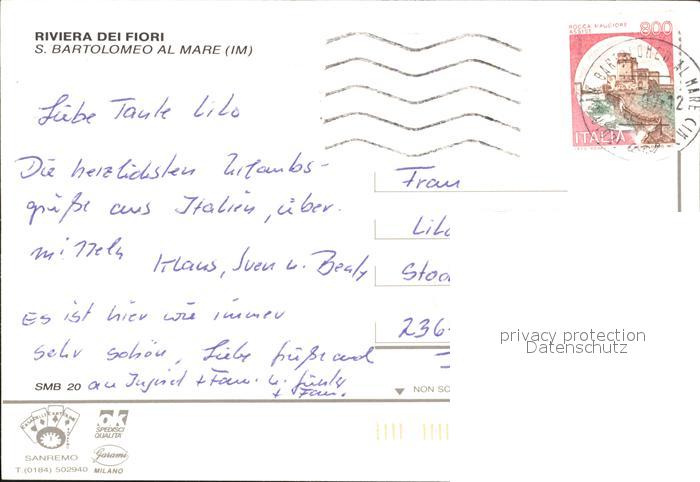 RIVIERA DEI FIORI
S. BARTOLOMEO AL MARE (IM)
ROCCA MAGGIORE
ASSISI
800
ITALIA
Liebe Tante Lilo
Die herzlichsten Urlaubs-
grüße aus Italien, über-
mitteln
Klaus, Sven u. Beaty
Es ist hier wie immer
sehr schön, Liebe Grüße auch
an Ingrid + Fam. u.
+ Fam.
Frau
Lilo
236
privacy protection
Datenschutz
SMB 20
NON SC
SANREMO
T. (0184) 502940
OK
SPEDISCI
QUALITA'
Garami
MILANO